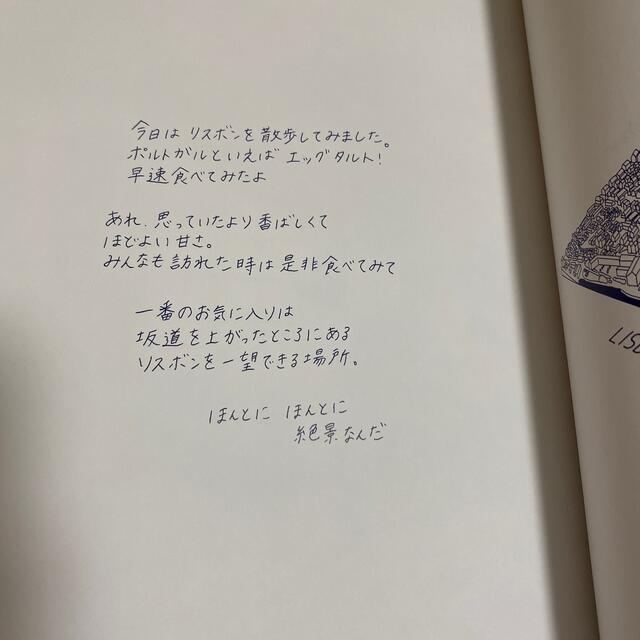 今日は リスボンを散歩してみました。
ポルトガルといえば エッグタルト!
早速食べてみたよ
あれ、思っていたより香ばしくて
ほどよい甘さ。
みんなも訪れた時は是非食べてみて
一番のお気に入りは
坂道を上がったところにある
リスボンを一望できる場所。
ほんとに ほんとに
絶景なんだ